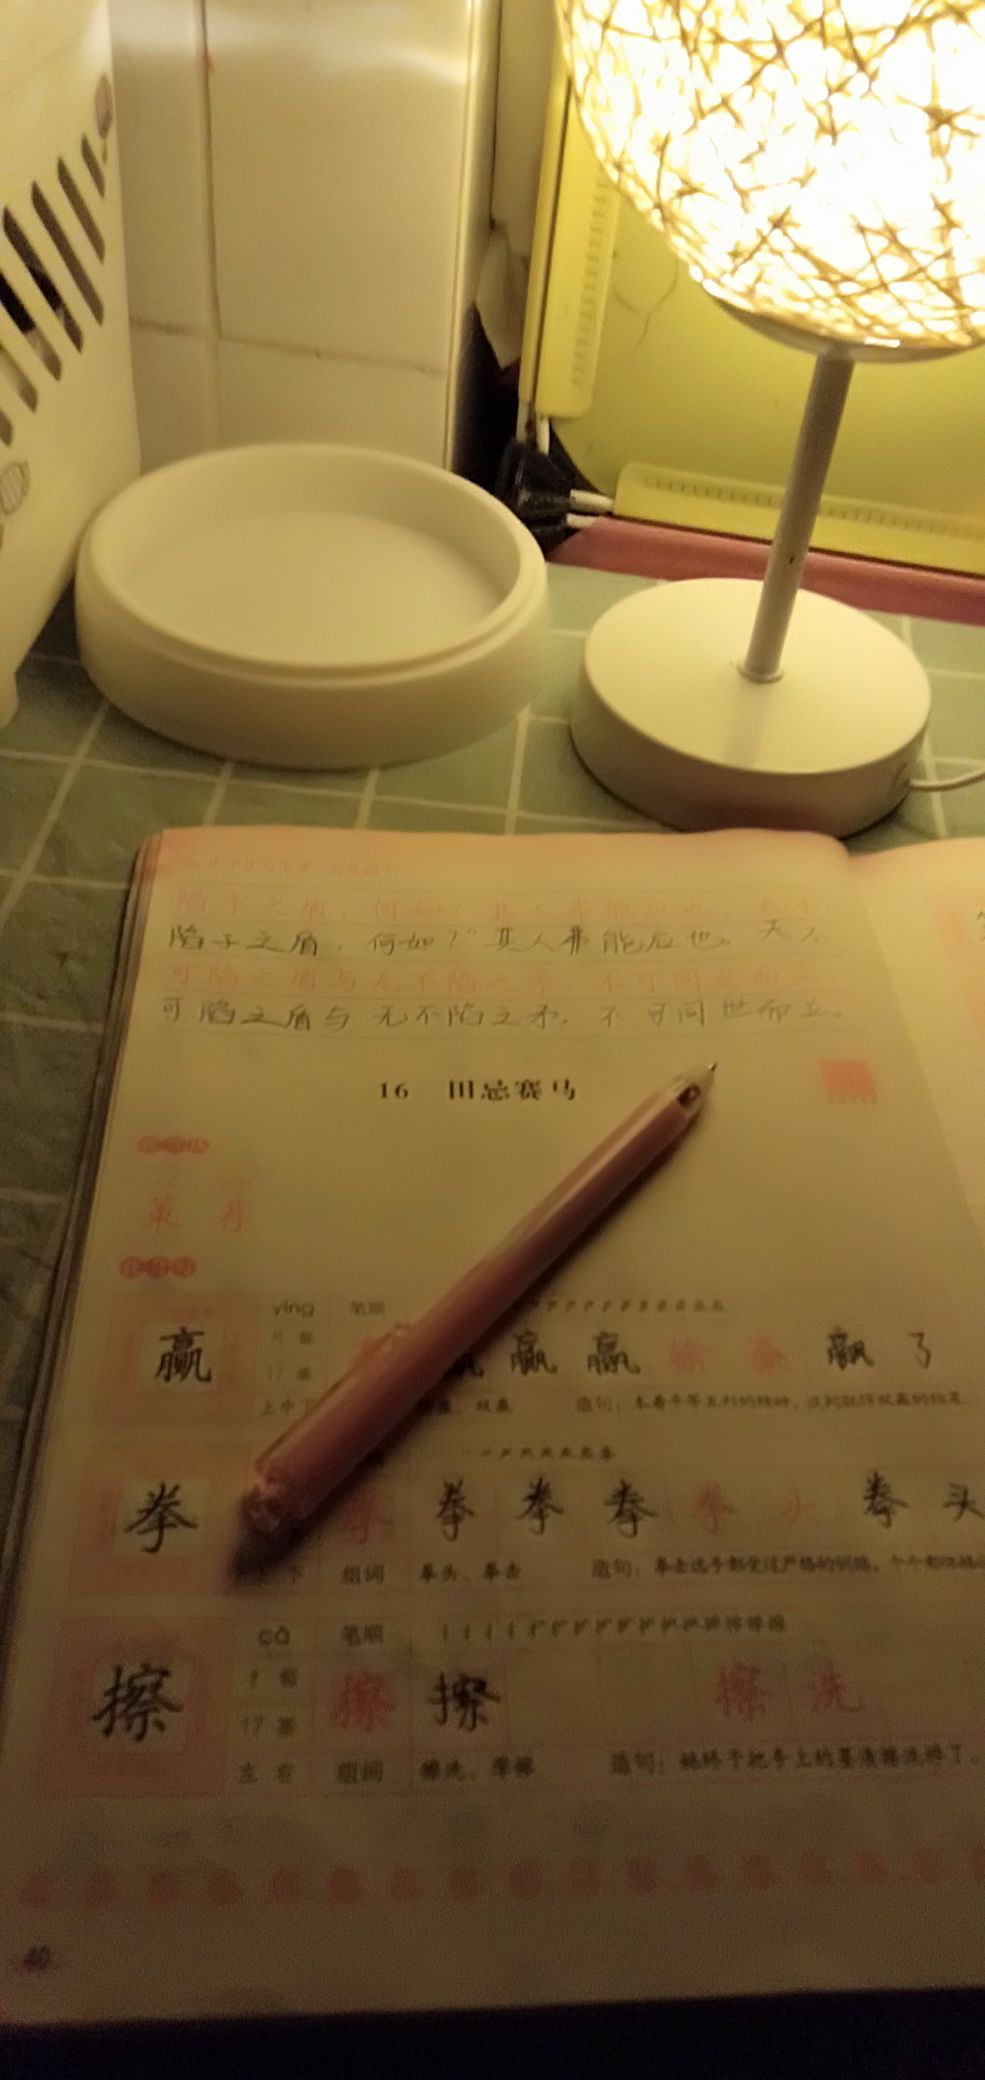 陷子之盾，何如？”其人弗能应也。夫不
陷子之盾，何如？”其人弗能应也。夫不
可陷之盾与无不陷之矛，不可同世而立。
可陷之盾与无不陷之矛，不可同世而立。
16 田忌赛马
策 荐
yíng 笔顺
赢 月部 赢 赢 输赢 赢了
17画
上中下 双赢 造句：本着平等互利的精神，达到取得双赢的结果
拳 拳 拳 拳 拳 拳头 拳头
组词 拳头、拳击 造句：拳击选手都受过严格的训练，个个都体格
cā 笔顺
擦 扌部 擦 擦 擦洗
17画
左右 组词 擦洗、摩擦 造句：她终于把手上的墨渍擦洗掉了
40